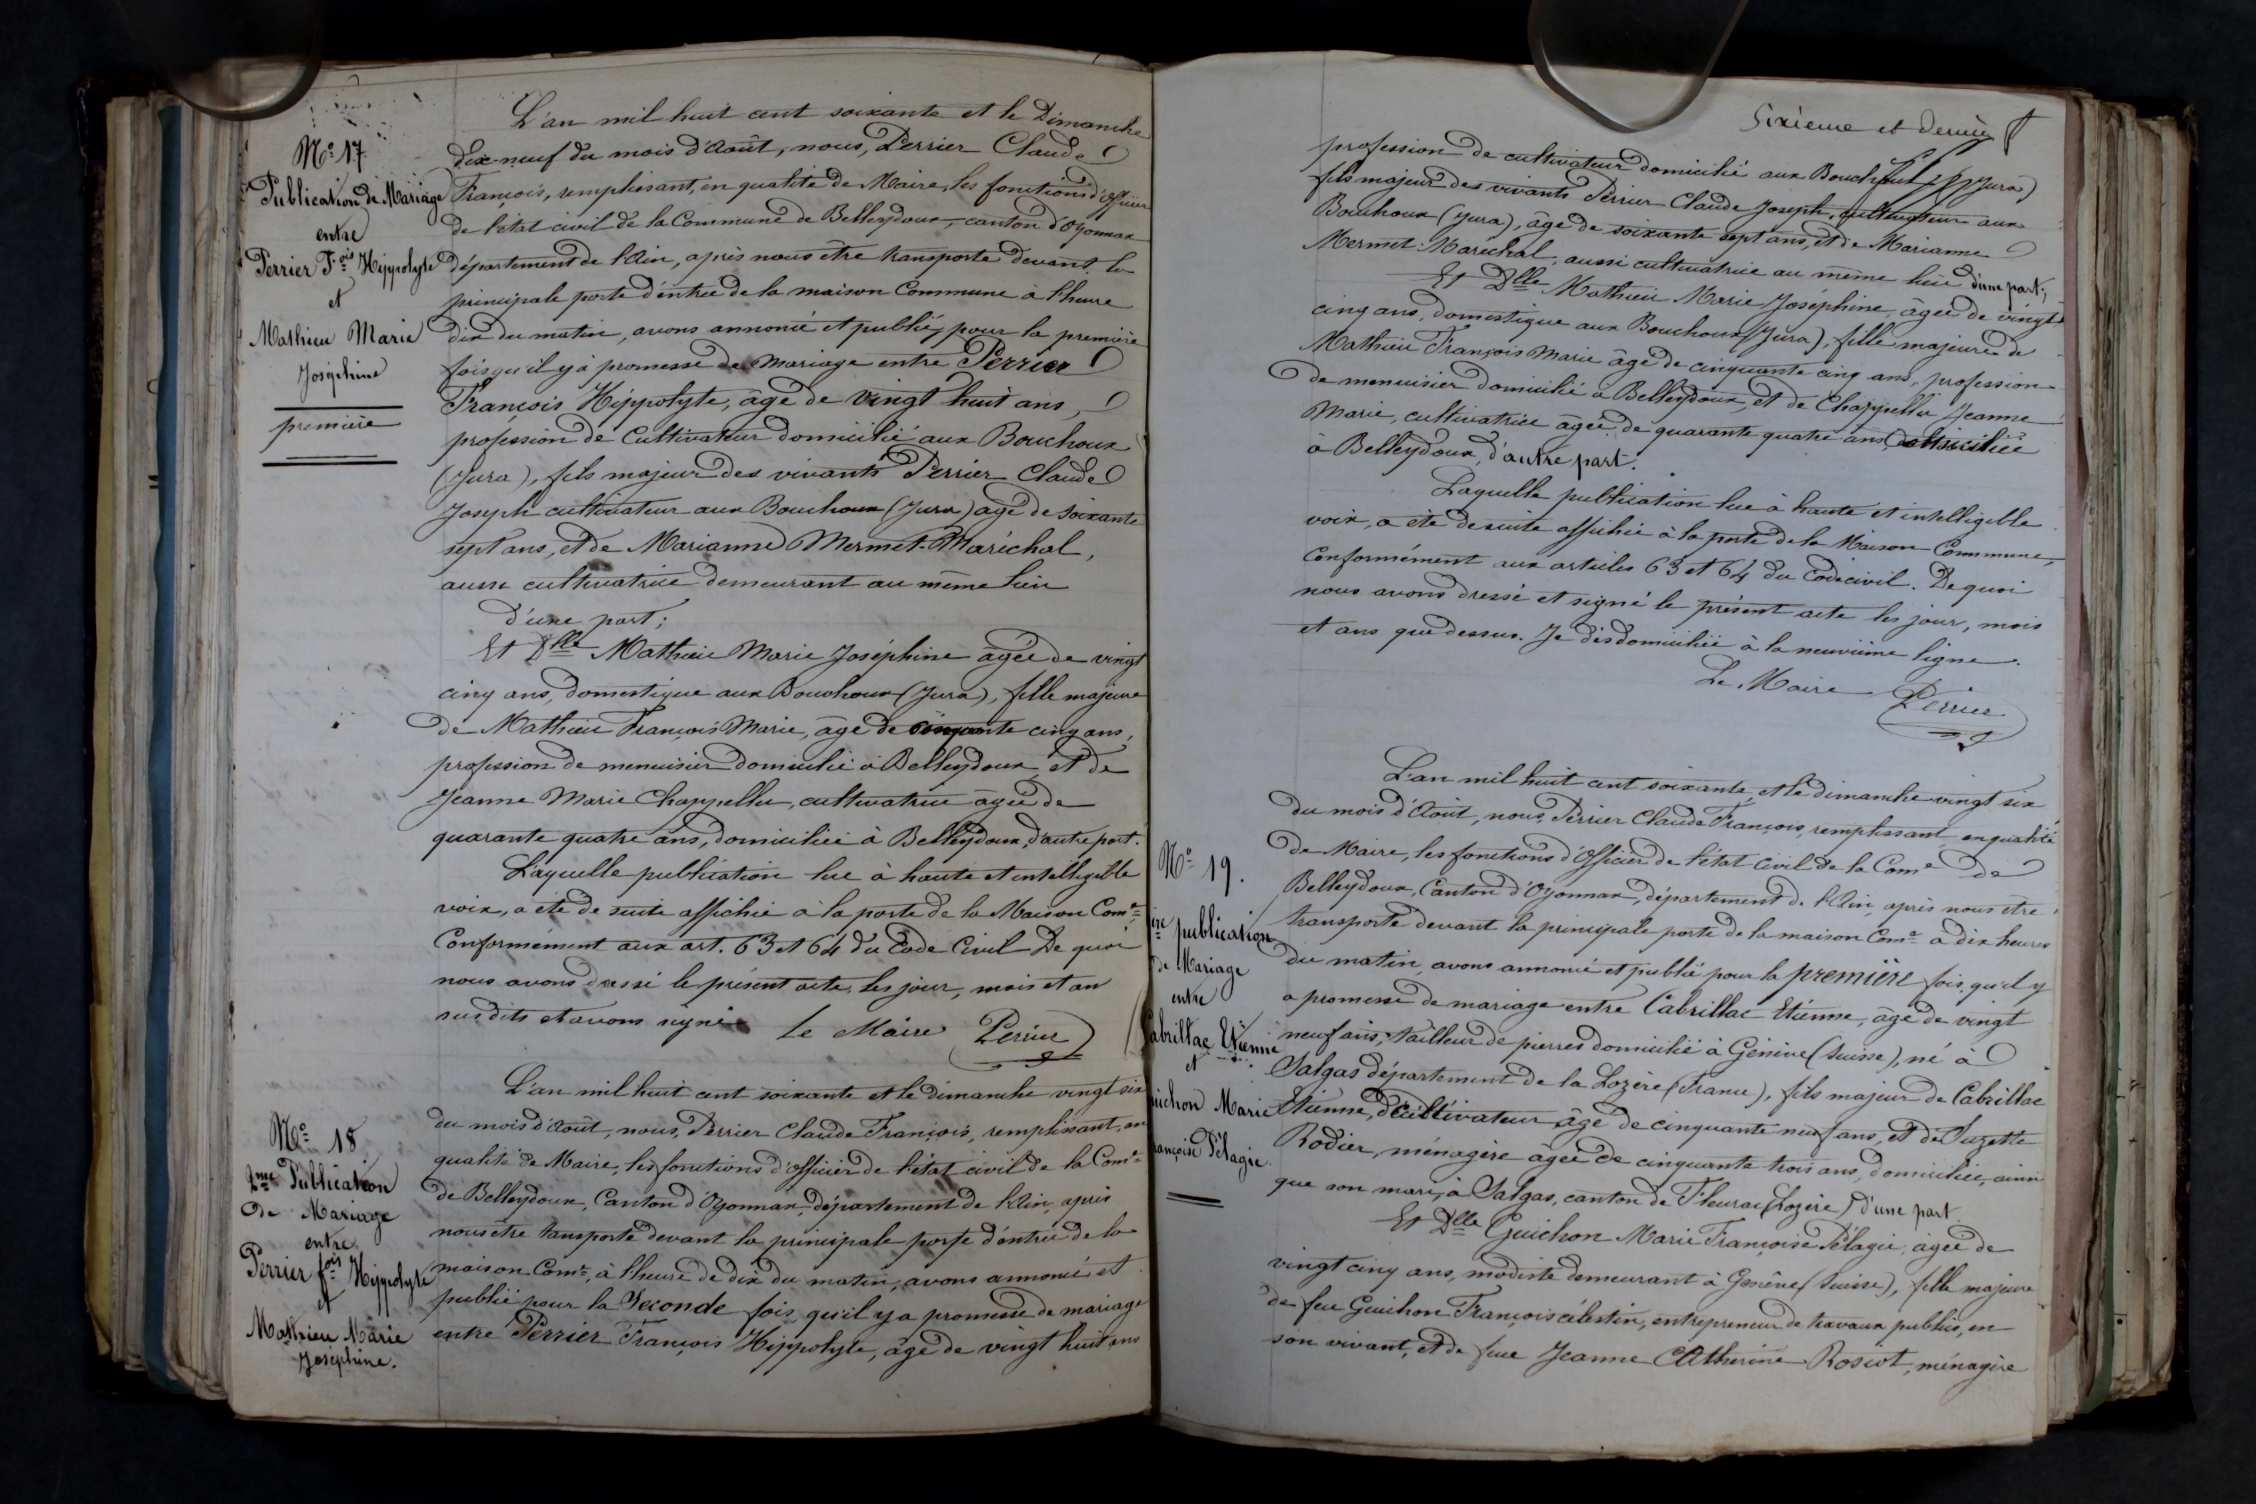 N° 17
Publication de Mariage
entre
Perrier F.ois Hippolyte
et
Mathieu Marie
Joséphine
première
L'an mil huit cent soixante et le Dimanche
dix-neuf du mois d'Août, nous, Perrier Claude
François, remplissant, en qualité de Maire, les fonctions d'officier
de l'état civil de la Commune de Belleydoux, canton d'Oyonnax
département de l'Ain, après nous être transporté devant la
principale porte d'entrée de la maison Commune à l'heure
dix du matin, avons annoncé et publié, pour la première
fois qu'il y à promesse de mariage entre Perrier
François Hippolyte, âgé de vingt huit ans,
profession de Cultivateur domicilié aux Bouchoux
(Jura), fils majeur des vivants Perrier Claude
Joseph cultivateur aux Bouchoux (Jura) âgé de soixante
sept ans, et de Marianne Mermet-Maréchal,
aussi cultivatrice demeurant au même lieu
d'une part;
Et Dlle Mathieu Marie Joséphine âgée de vingt
cinq ans, domestique aux Bouchoux (Jura), fille majeure
de Mathieu François Marie, âgé de cinquante cinq ans,
profession de menuisier domicilié à Belleydoux, et de
Jeanne Marie Chappellu, cultivatrice âgée de
quarante quatre ans, domiciliée à Belleydoux, d'autre part.
Laquelle publication lue à haute et intelligible
voix, a été de suite affichée à la porte de la Maison Com.e
Conformément aux art. 63 et 64 du Code Civil. De quoi
nous avons dressé le présent acte, les jour, mois et an
susdits et avons signé. Le Maire Perrier
N° 18
2me Publication
de Mariage
entre
Perrier fois Hippolyte
et
Mathieu Marie
Joséphine.
L'an mil huit cent soixante et le dimanche vingt six
du mois d'Août, nous, Perrier Claude François, remplissant, en
qualité de Maire, les fonctions d'officier de l'état civil de la Com.e
de Belleydoux, Canton d'Oyonnax, département de l'Ain, après
nous être transporté devant la principale porte d'entrée de la
maison Com.e, à l'heure de dix du matin, avons annoncé et
publié pour la Seconde fois qu'il y a promesse de mariage
entre Perrier François Hippolyte, âgé de vingt huit ans
Sixième et dernier
profession de cultivateur domicilié aux Bouchoux (Jura)
fils majeur des vivants Perrier Claude Joseph, cultivateur aux
Bouchoux (Jura), âgé de soixante sept ans, et de Marianne
Mermet-Maréchal, aussi cultivatrice au même lieu d'une part;
Et Dlle Mathieu Marie Joséphine, âgée de vingt
cinq ans, domestique aux Bouchoux (Jura), fille majeure de
Mathieu François Marie âgé de cinquante cinq ans, profession
de menuisier domicilié à Belleydoux, et de Chappellu Jeanne
Marie, cultivatrice âgée de quarante quatre ans, domiciliée
à Belleydoux, d'autre part.
Laquelle publication lue à haute et intelligible
voix, a été de suite affichée à la porte de la Maison Commune,
Conformément aux articles 63 et 64 du Code civil. De quoi
nous avons dressé et signé le présent acte les jour, mois
et ans que dessus. Je dis domiciliée à la neuvième ligne.
Le Maire Perrier
N° 19.
1ère publication
de Mariage
entre
Cabrillac Etienne
et
Guichon Marie
Françoise Pélagie.
L'an mil huit cent soixante, et le dimanche vingt six
du mois d'Août, nous, Perrier Claude François, remplissant, en qualité
de Maire, les fonctions d'officier de l'état Civil de la Com.e de
Belleydoux, Canton d'Oyonnax, département de l'Ain, après nous être
transporté devant la principale porte de la maison Com.e à dix heures
du matin, avons annoncé et publié pour la première fois, qu'il y
a promesse de mariage entre Cabrillac Etienne, âgé de vingt
neuf ans, tailleur de pierres domicilié à Génève (Suisse), né à
Salgas département de la Lozère (France), fils majeur de Cabrillac
Etienne, Cultivateur âgé de cinquante neuf ans, et de Suzette
Rodier, ménagère âgée de cinquante trois ans, domiciliée, ainsi
que son mari, à Salgas, canton de Fleurac (Lozère) d'une part
Et Dlle Guichon Marie Françoise Pélagie, âgée de
vingt cinq ans, modiste demeurant à Genève (Suisse), fille majeure
de feu Guichon François célestin, entrepreneur de travaux publics, en
son vivant, et de feue Jeanne Catherine Rosiot, ménagère